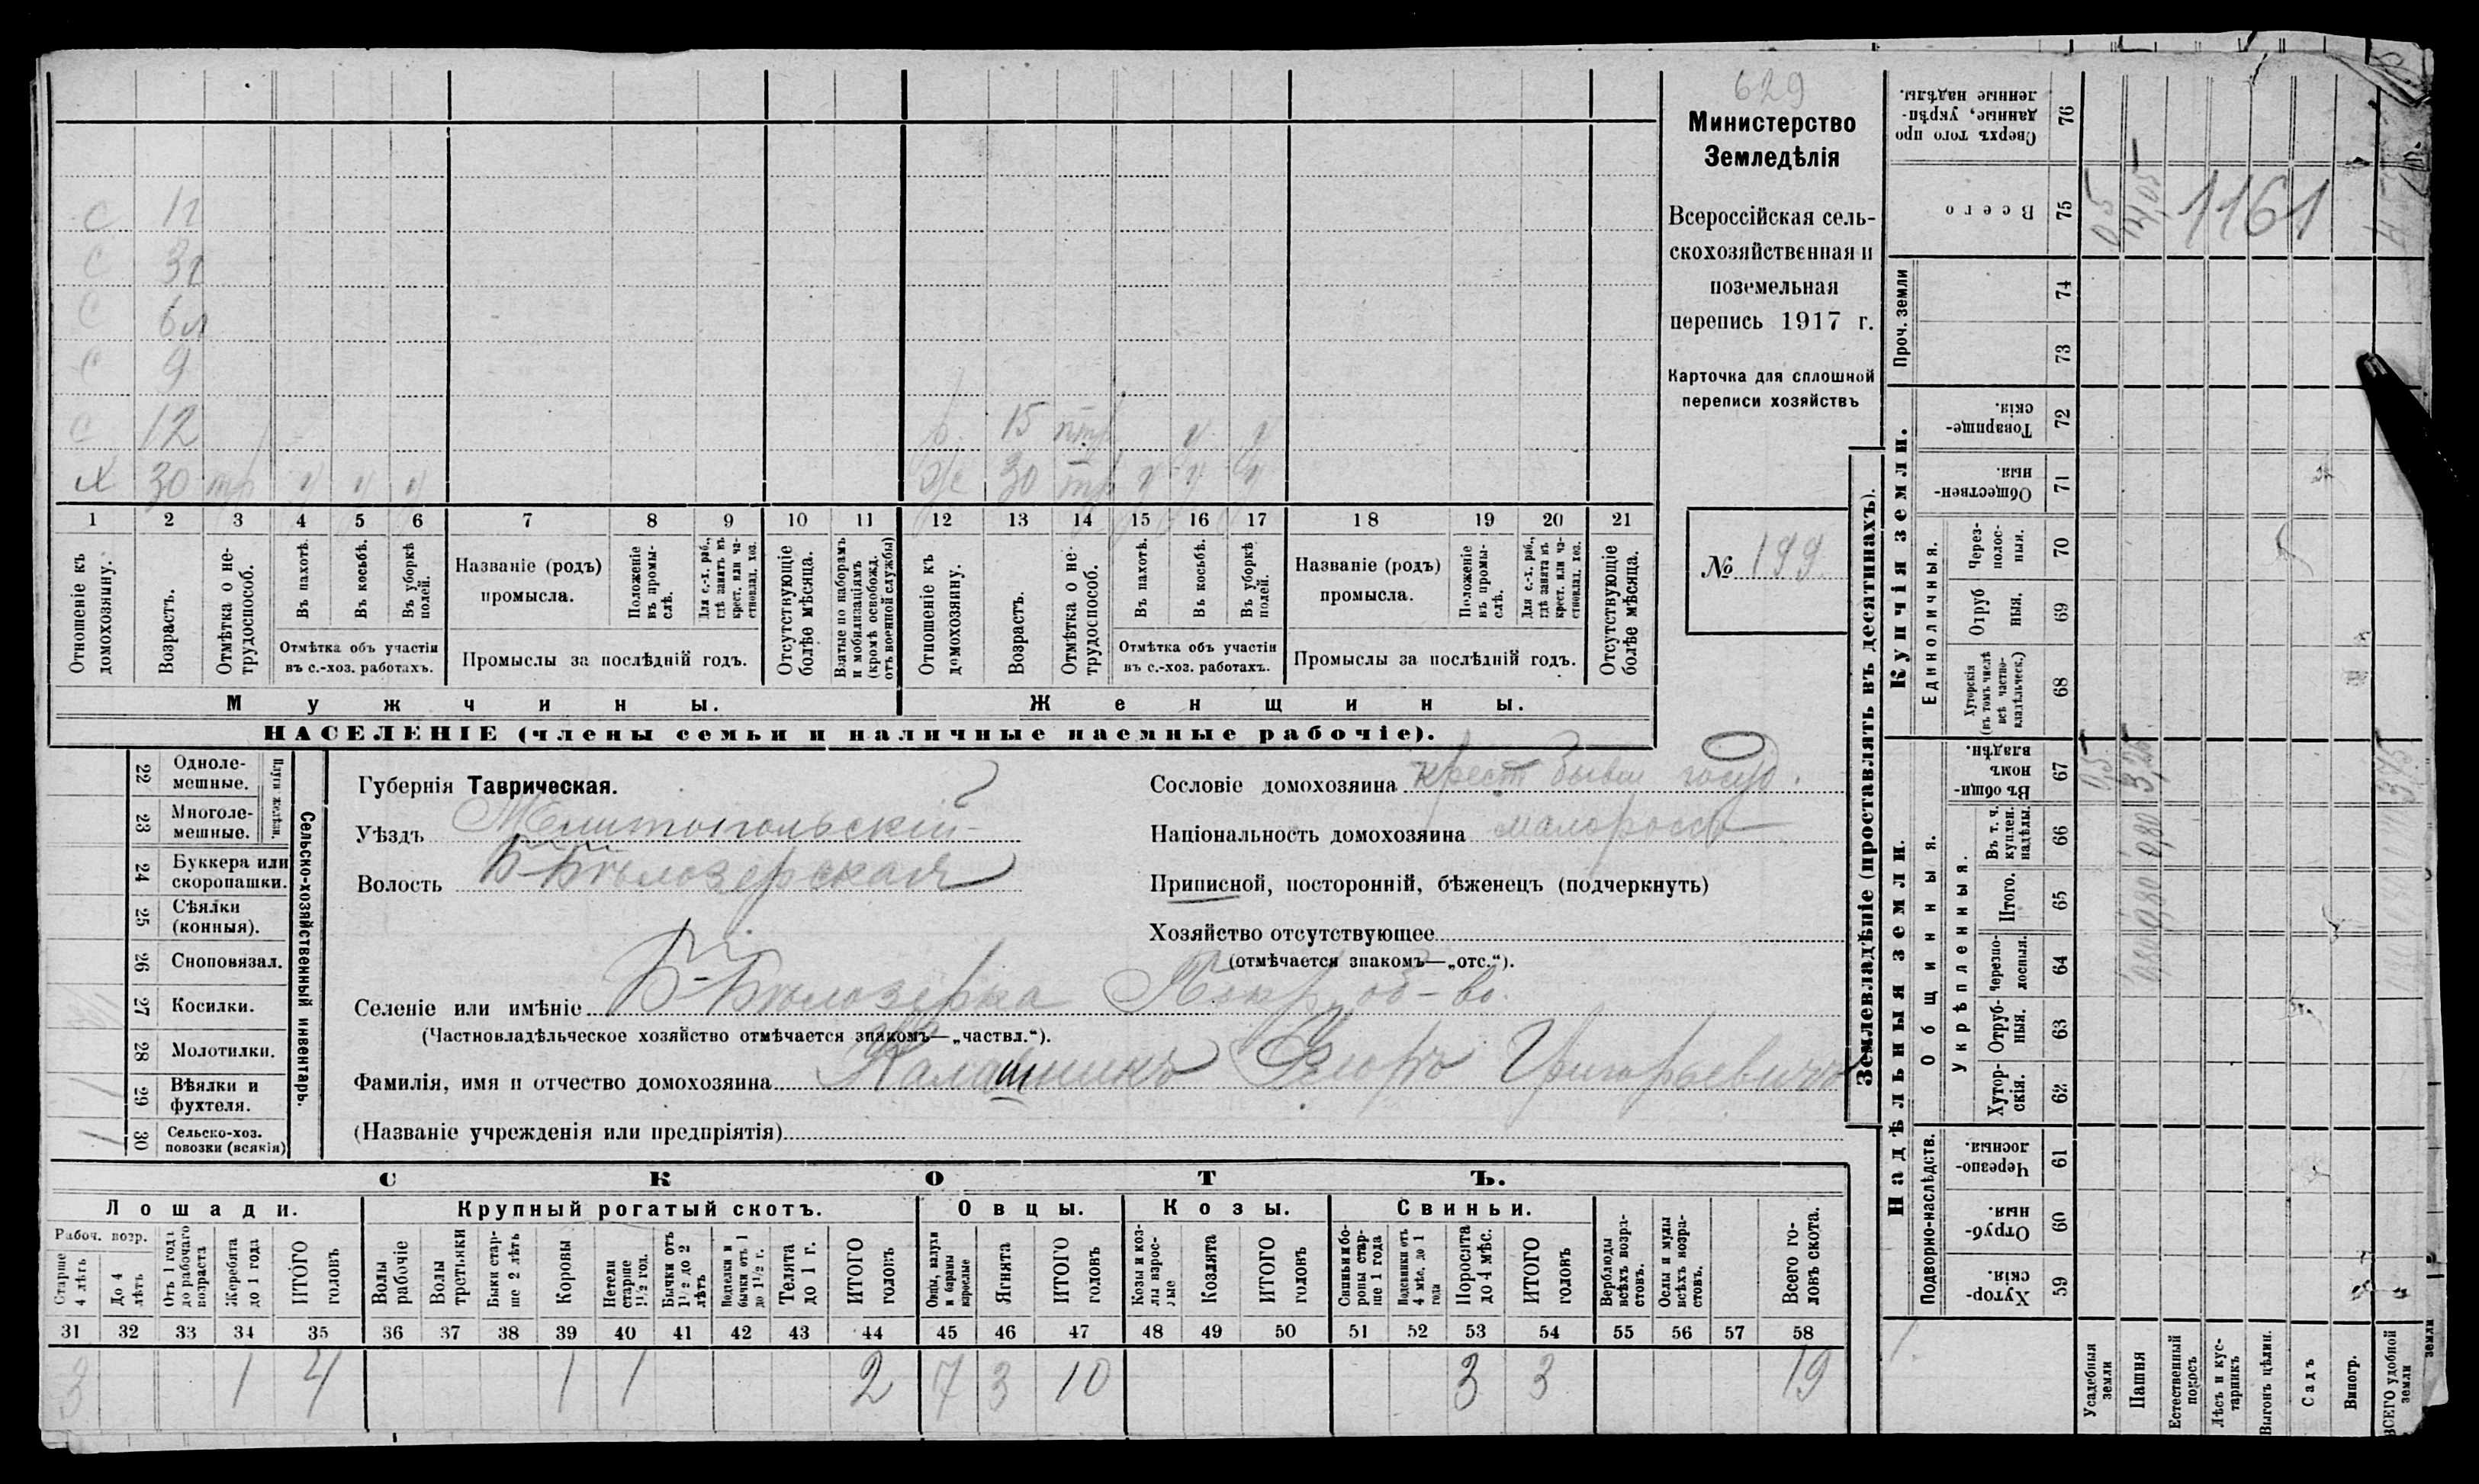 629
Министерство
Земледѣлія
Всероссійская сель-
скохозяйственная и
поземельная
перепись 1917 г.
Карточка для сплошной
переписи хозяйствъ
№ 199
с 1 г
с 3 г
с 6 л
с 9
с 12
р. 15 птр ч ч
х 30 тр ч ч ч
ж 30 тр ч ч ч
1 2 3 4 5 6 7 8 9 10 11 12 13 14 15 16 17 18 19 20 21
Отношеніе къ домохозяину.
Возрастъ.
Отмѣтка о не-трудоспособ.
Въ пахотѣ.
Въ косьбѣ.
Въ уборкѣ полей.
Отмѣтка объ участіи въ с.-хоз. работахъ.
Названіе (родъ) промысла.
Положеніе въ промы-слѣ.
Для с.-х. раб., гдѣ занятъ въ крест. или ча-стновлад. хоз.
Промыслы за послѣдній годъ.
Отсутствующіе болѣе мѣсяца.
Взятые по наборамъ и мобилизаціямъ (кромѣ освобожд. отъ военной службы)
Отношеніе къ домохозяину.
Возрастъ.
Отмѣтка о не-трудоспособ.
Въ пахотѣ.
Въ косьбѣ.
Въ уборкѣ полей.
Отмѣтка объ участіи въ с.-хоз. работахъ.
Названіе (родъ) промысла.
Положеніе въ промы-слѣ.
Для с.-х. раб., гдѣ занята въ крест. или ча-стновлад. хоз.
Промыслы за послѣдній годъ.
Отсутствующіе болѣе мѣсяца.
Мужчины.
Женщины.
НАСЕЛЕНІЕ (члены семьи и наличные наемные рабочіе).
Сельско-хозяйственный инвентарь.
Плуги желѣзн.
22 Одноле-мешные.
23 Многоле-мешные.
24 Буккера или скоропашки.
25 Сѣялки (конныя).
26 Сноповязал.
27 Косилки.
28 Молотилки.
29 Вѣялки и фухтеля. 1
30 Сельско-хоз. повозки (всякія) 1
Губернія Таврическая.
Уѣздъ Мелитопольскій
Волость Б-Бѣлозерская
Сословіе домохозяина крест бывш госуд.
Національность домохозяина малороссъ
Приписной, посторонній, бѣженецъ (подчеркнуть)
Хозяйство отсутствующее
(отмѣчается знакомъ—„отс.“).
Селеніе или имѣніе Б-Бѣлозерка Покр. об-во.
(Частновладѣльческое хозяйство отмѣчается знакомъ—„частвл.“).
Фамилія, имя и отчество домохозяина Калашникъ Ѳеоръ Григорьевичъ
(Названіе учрежденія или предпріятія)
СКОТЪ.
Лошади.
Крупный рогатый скотъ.
Овцы.
Козы.
Свиньи.
Рабоч. возр.
Старше 4 лѣтъ
До 4 лѣтъ
Отъ 1 года до рабочаго возраста
Жеребята до 1 года
ИТОГО головъ
Волы рабочіе
Волы третьяки
Быки стар-ше 2 лѣтъ
Коровы
Нетели старше 1½ год.
Бычки отъ 1½ до 2 лѣтъ
Подтелки и бычки отъ 1 до 1½ г.
Телята до 1 г.
ИТОГО головъ
Овцы, валухи и бараны взрослые
Ягнята
ИТОГО головъ
Козы и коз-лы взрос-лые
Козлята
ИТОГО головъ
Свиньи и бо-ровы стар-ше 1 года
Подсвинки отъ 4 мѣс. до 1 года
Поросята до 4 мѣс.
ИТОГО головъ
Верблюды всѣхъ возра-стовъ.
Ослы и мулы всѣхъ возра-стовъ.
Всего го-ловъ скота.
31 32 33 34 35 36 37 38 39 40 41 42 43 44 45 46 47 48 49 50 51 52 53 54 55 56 57 58
3 1 4 1 1 2 7 3 10 3 3 19
Землевладѣніе (проставлять въ десятинахъ).
Купчія земли.
Надѣльныя земли.
76 Сверхъ того про данные, укрѣп-ленные надѣлы.
75 Всего 0,5 14,05 1161
Проч. земли
74
73
72 Товарище-скія.
71 Обществен-ныя.
Единоличныя.
70 Через-полос-ныя.
69 Отруб ныя.
68 Хуторскія (въ томъ числѣ всѣ частно-владѣльческ.)
Общинныя.
67 Въ общи-номъ владѣн. 0,5 3,25 3,75
Укрѣпленныя.
66 Въ т. ч. куплен. надѣлы. 0,80
65 Итого. 0,80
64 Черезпо-лосныя. 0,80
63 Отруб-ныя.
62 Хутор-скія.
Подворно-наслѣдств.
61 Черезпо-лосныя.
60 Отруб-ныя.
59 Хутор-скія.
1.
Усадебныя земли
Пашня
Естественный покосъ
Лѣсъ и кус-тарникъ
Выгонъ цѣлин.
Садъ
Виногр.
ВСЕГО удобной земли
земли